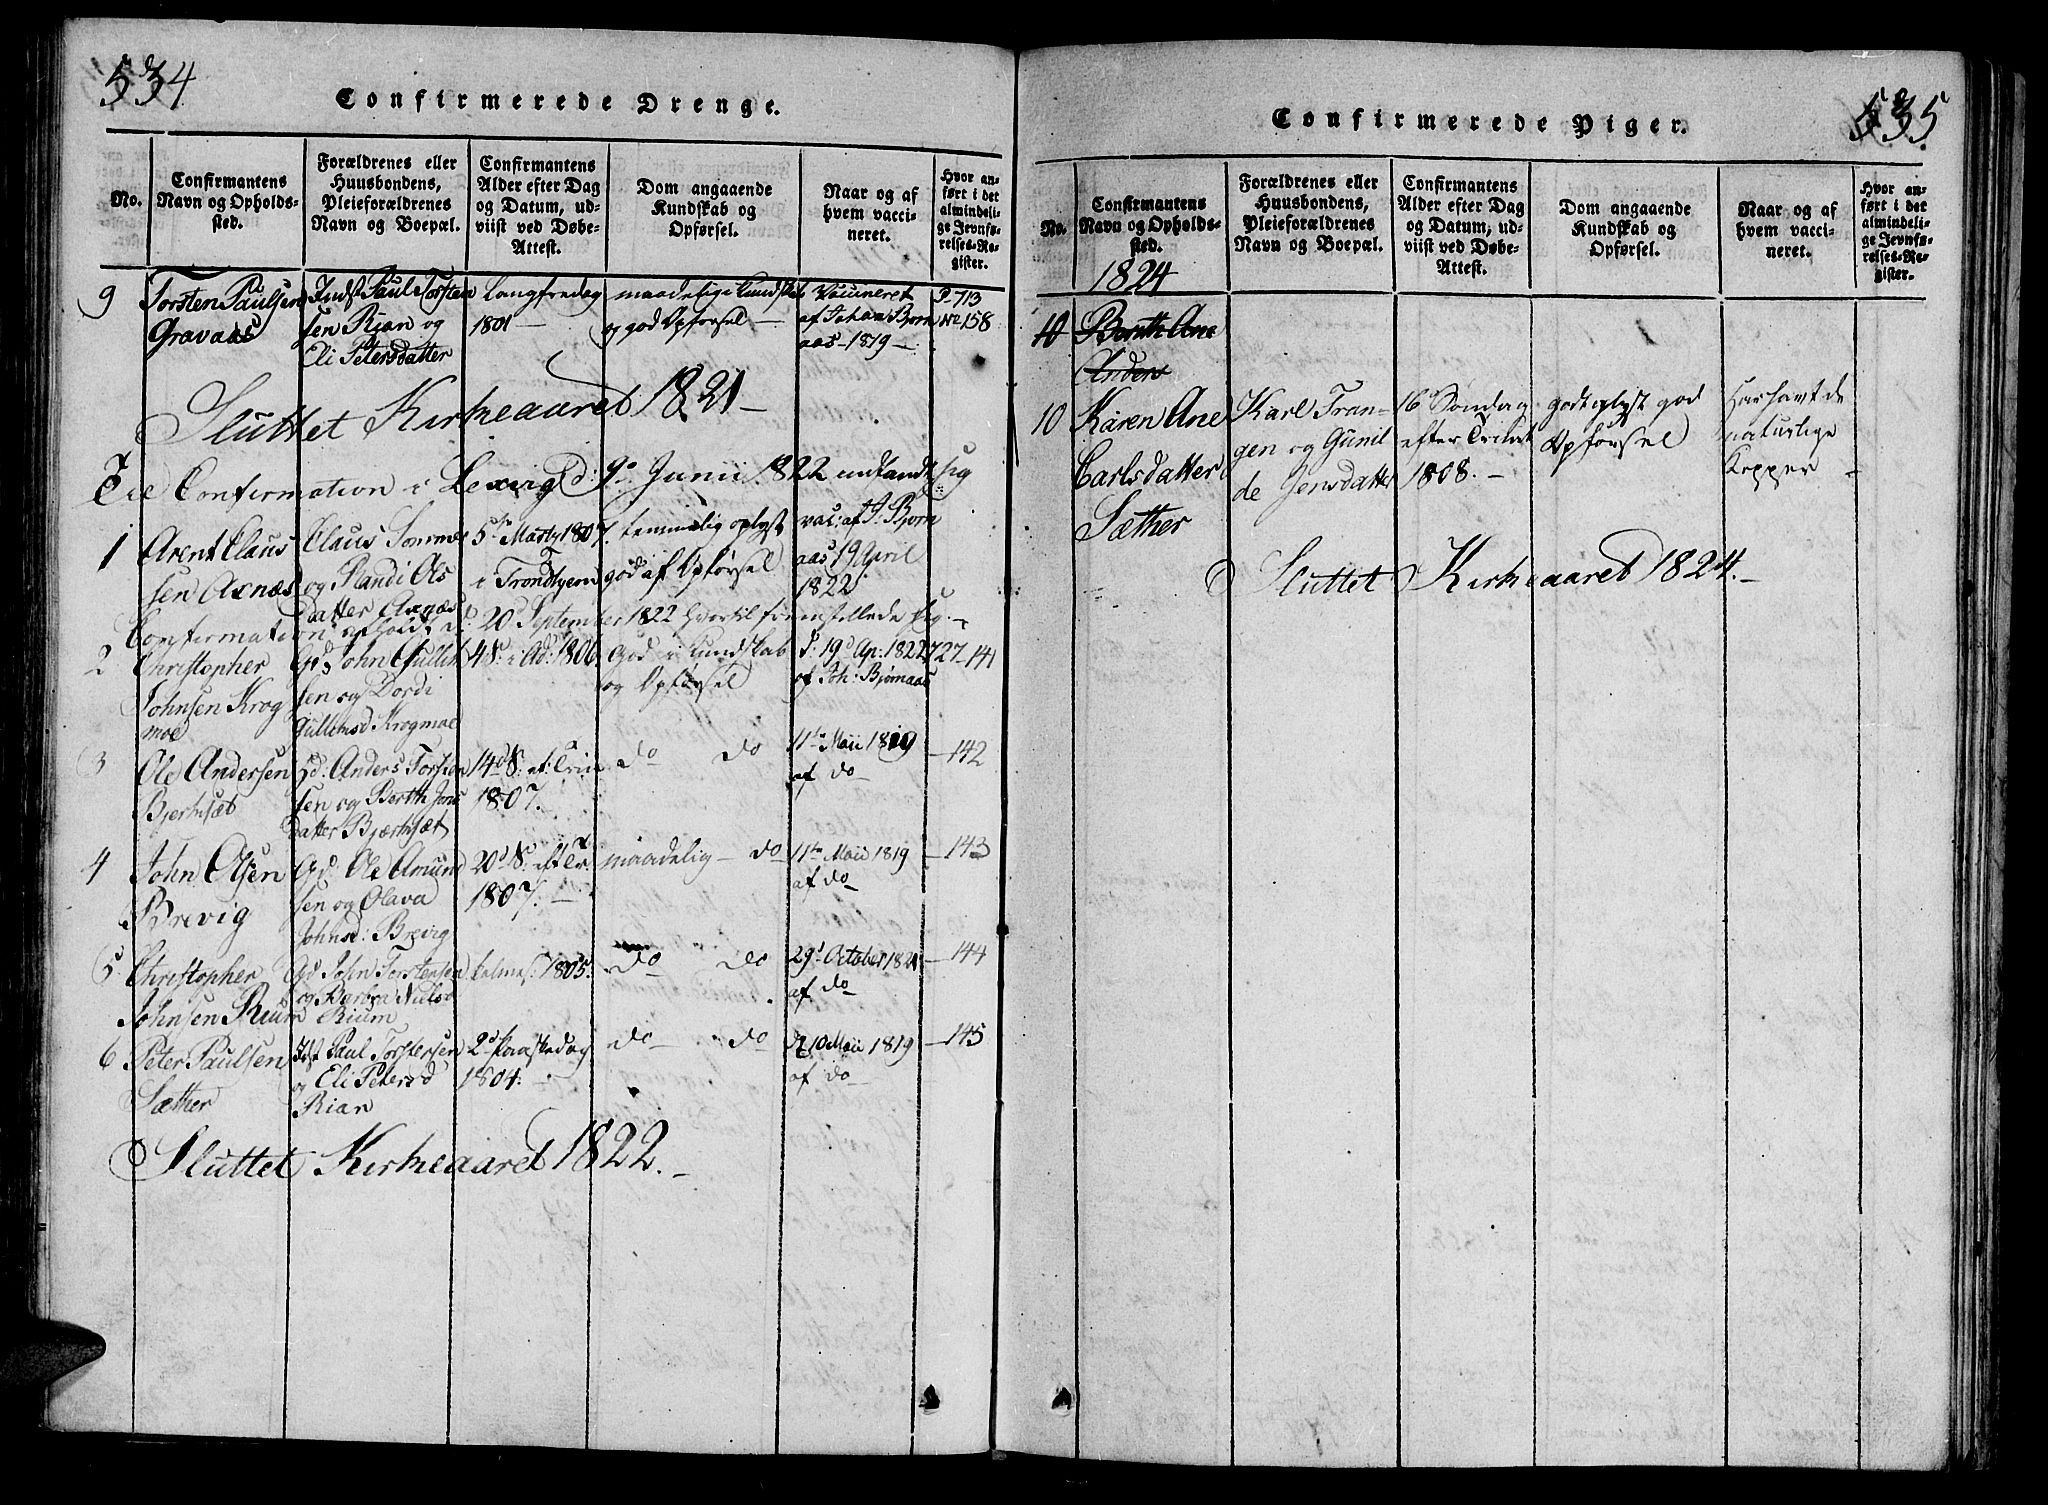 534
Confirmerede Drenge.
No.
Confirmantens
Navn og Opholds-
sted.
Forældrenes eller
Huusbondens,
Pleieforældrenes
Navn og Boepæl.
Confirmantens
Alder efter Dag
og Datum, ud-
viist ved Døbe-
Attest.
Dom angaaende
Kundskab og
Opførsel.
Naar og af
hvem vacci-
neret.
Hvor an-
ført i det
almindeli-
ge Jevnfø-
relses-Re-
gister.
9
Torsten Paulsen
Gravaas
Indst Paul Torsten
sen Rian og
Eli Petersdatter
Langfredag
1801 —
maadelig Kundskab
og god Opførsel —
Vaccineret
af Johan Bjørn
aas – 1819 —
P. 713
No 158
Sluttet Kirkeaaret 1821 —
Til Confirmation i Lexvig d: 9de Junii 1822 indfandt sig
1
Arent Claus
sen Axnæs
Claus Sommer
og Randi Ols
datter Axnæs
5te Marty 1807.
i Trondhjem
temmelig oplyst
god af Opførsel
vac: af J. Bjørn
aas 19 April
1822
Confirmation afholdt d: 20d September 1822 hvortil fremstillede sig. –
2
Christopher
Johnsen Krog
moe
Gd John Gullik
sen og Dordi
Gullensd Krogmoe
4 S: i Ad: 1806
God i Kundskab
og Opførsel
d: 19d Ap: 1822
af Joh: Bjørnaas
727–141
3
Ole Andersen
Bjerhsæt
Gd. Anders Torsten
sen og Berith Jons
datter Bjerhsæt
14de S: ef: Trin
1807.
do do
11te Maii 1819
af do —
— 142
4
John Olsen
Brevig
Gd. Ole Amund
sen og Olava
Johnsd: Brevig
20d S: eft Tr
1807. —
maadelig — do
11te Maii 1819
af do
— 143
5
Christopher
Johnsen Rium
Gd John Torstensen
og Berben Nilsd
Rium
1805.
do do
29d October 1821
af do
— 144
6
Peter Paulsen
Sæther
Idst Paul Torstersen
og Eli Petersd
Rian
2d Paaskedag
1804. —
do do
d 10 Maii 1819
af do
— 145
Sluttet Kirkeaaret 1822. —
535
Confirmerede Piger.
No.
Confirmantens
Navn og Opholds-
sted.
Forældrenes eller
Huusbondens,
Pleieforældrenes
Navn og Boepæl.
Confirmantens
Alder efter Dag
og Datum, ud-
viist ved Døbe-
Attest.
Dom angaaende
Kundskab og
Opførsel.
Naar og af
hvem vacci-
neret.
Hvor an-
ført i det
almindeli-
ge Jevnfø-
relses-Re-
gister.
1824
10
Berith Ane
Anders
10
Karen Ane
Carlsdatter
Sæther
Karl Tran-
gen og Gunil
de Jensdatter
16 Søndag
efter Trinit
1808. –
godt oplyst god
Opførsel
Har havt de
naturlige
Kopper –
Sluttet Kirkeaaret 1824. –